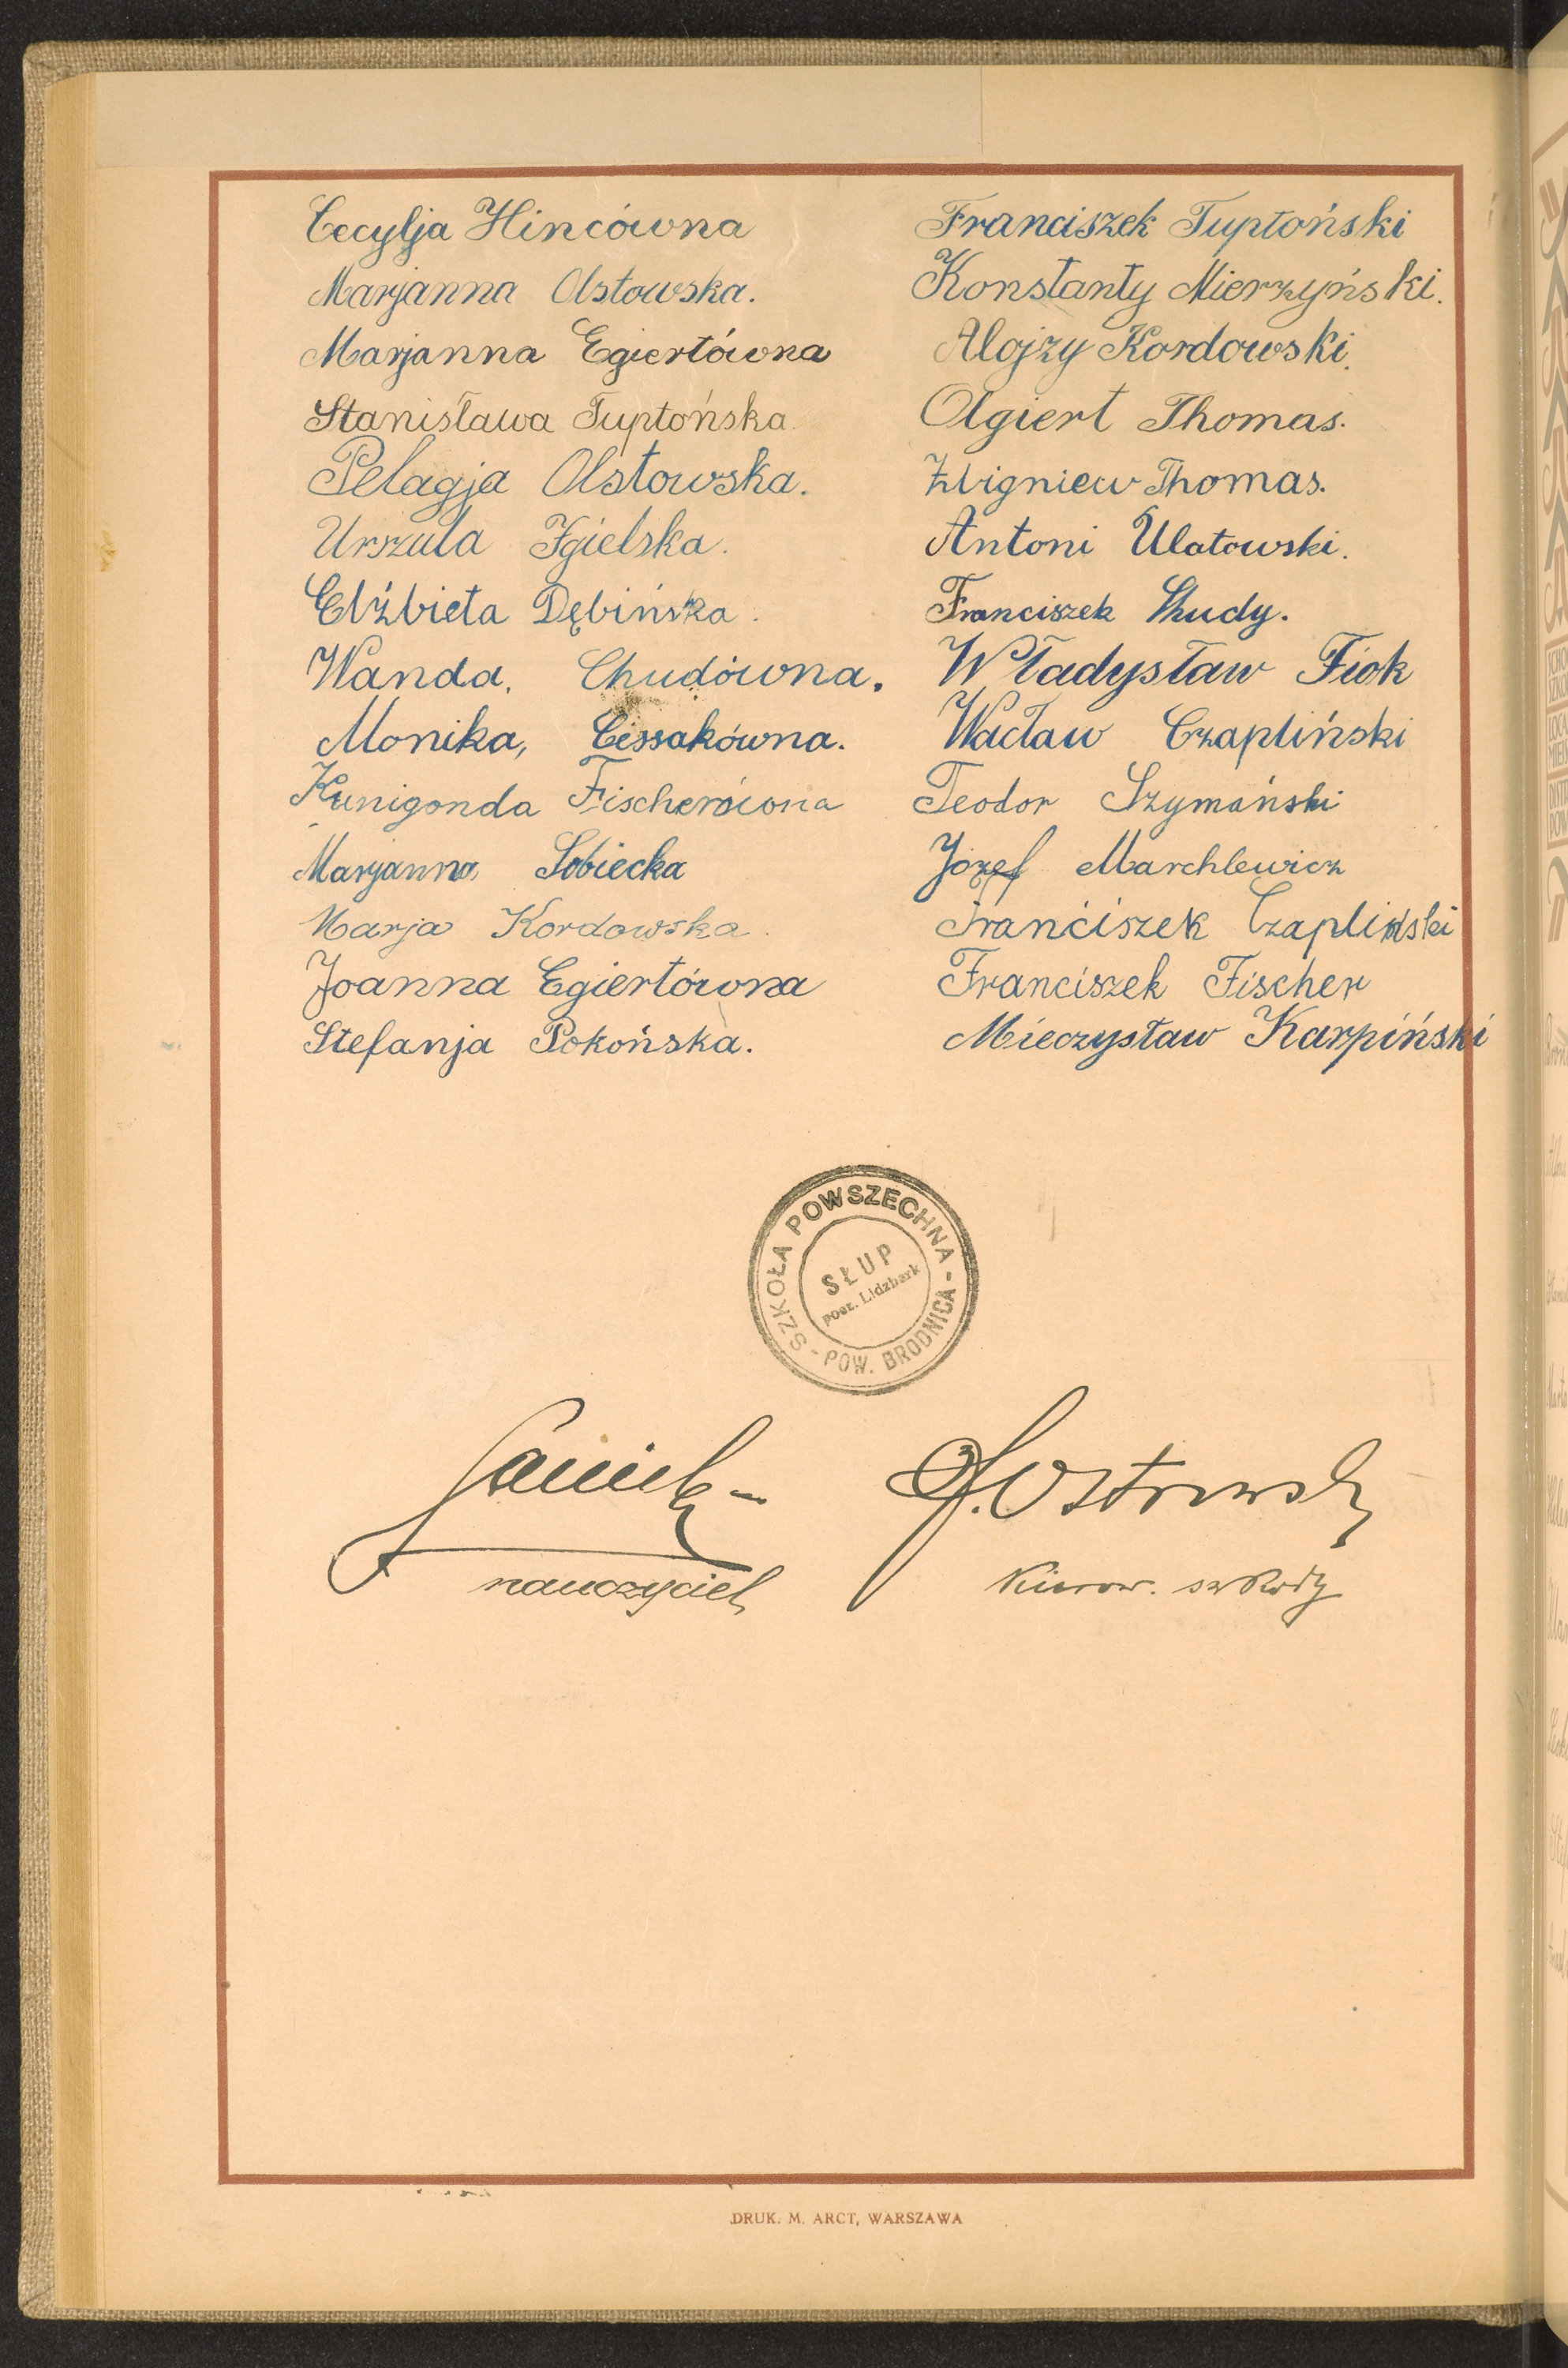 Cecylja Hincówna
Marjanna Olstowska.
Marjanna Egiertówna
Stanisława Tuptońska
Pelagja Olstowska.
Urszula Igielska.
Elżbieta Dębińska.
Wanda, Chudówna.
Monika, Cissakówna.
Kunigonda Fischerówna
Marjanna Sobiecka
Marja Kordowska.
Joanna Egiertówna
Stefanja Pokońska.
Franciszek Tuptoński
Konstanty Mierzyński.
Alojzy Kordowski.
Olgiert Thomas.
Zbigniew Thomas.
Antoni Ulatowski.
Franciszek Chudy.
Władysław Fiok
Wacław Czapliński
Teodor Szymański
Józef Marchlewicz
Franciszek Czapliński
Franciszek Fischer
Mieczysław Karpiński
SZKOŁA POWSZECHNA
SŁUP
pocz. Lidzbark
- POW. BRODNICA -
Ostrowski
nauczyciel
Kierow. szkoły
DRUK. M. ARCT, WARSZAWA